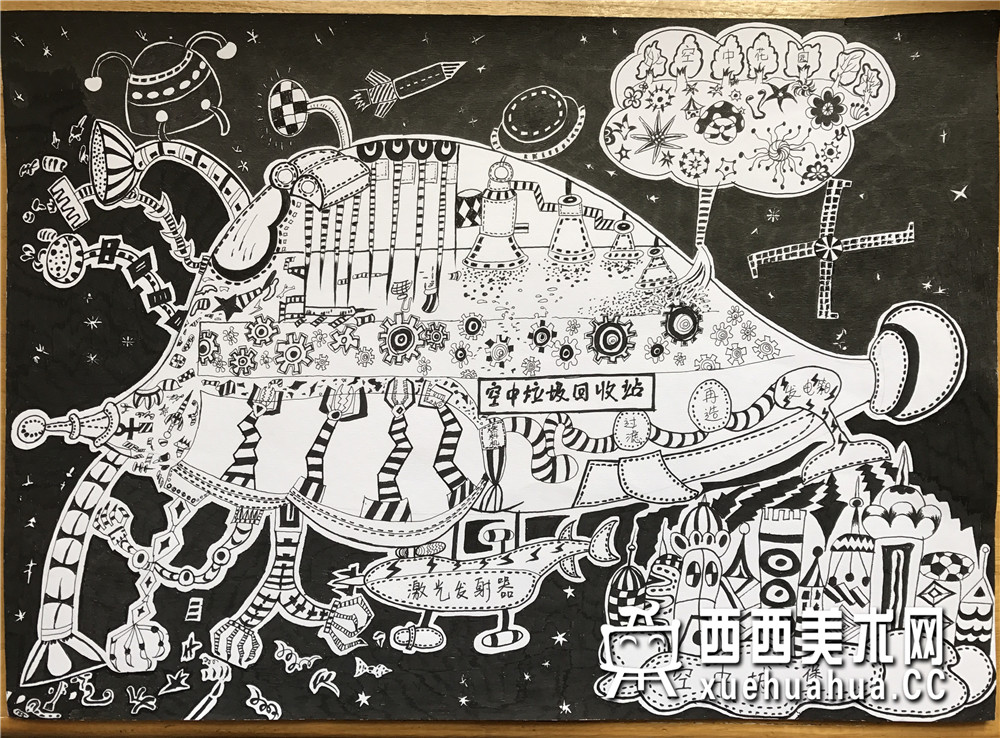 空中花园
空中垃圾回收站
再造
过滤
激光发射器
西西美术网
xuehuahua.CC